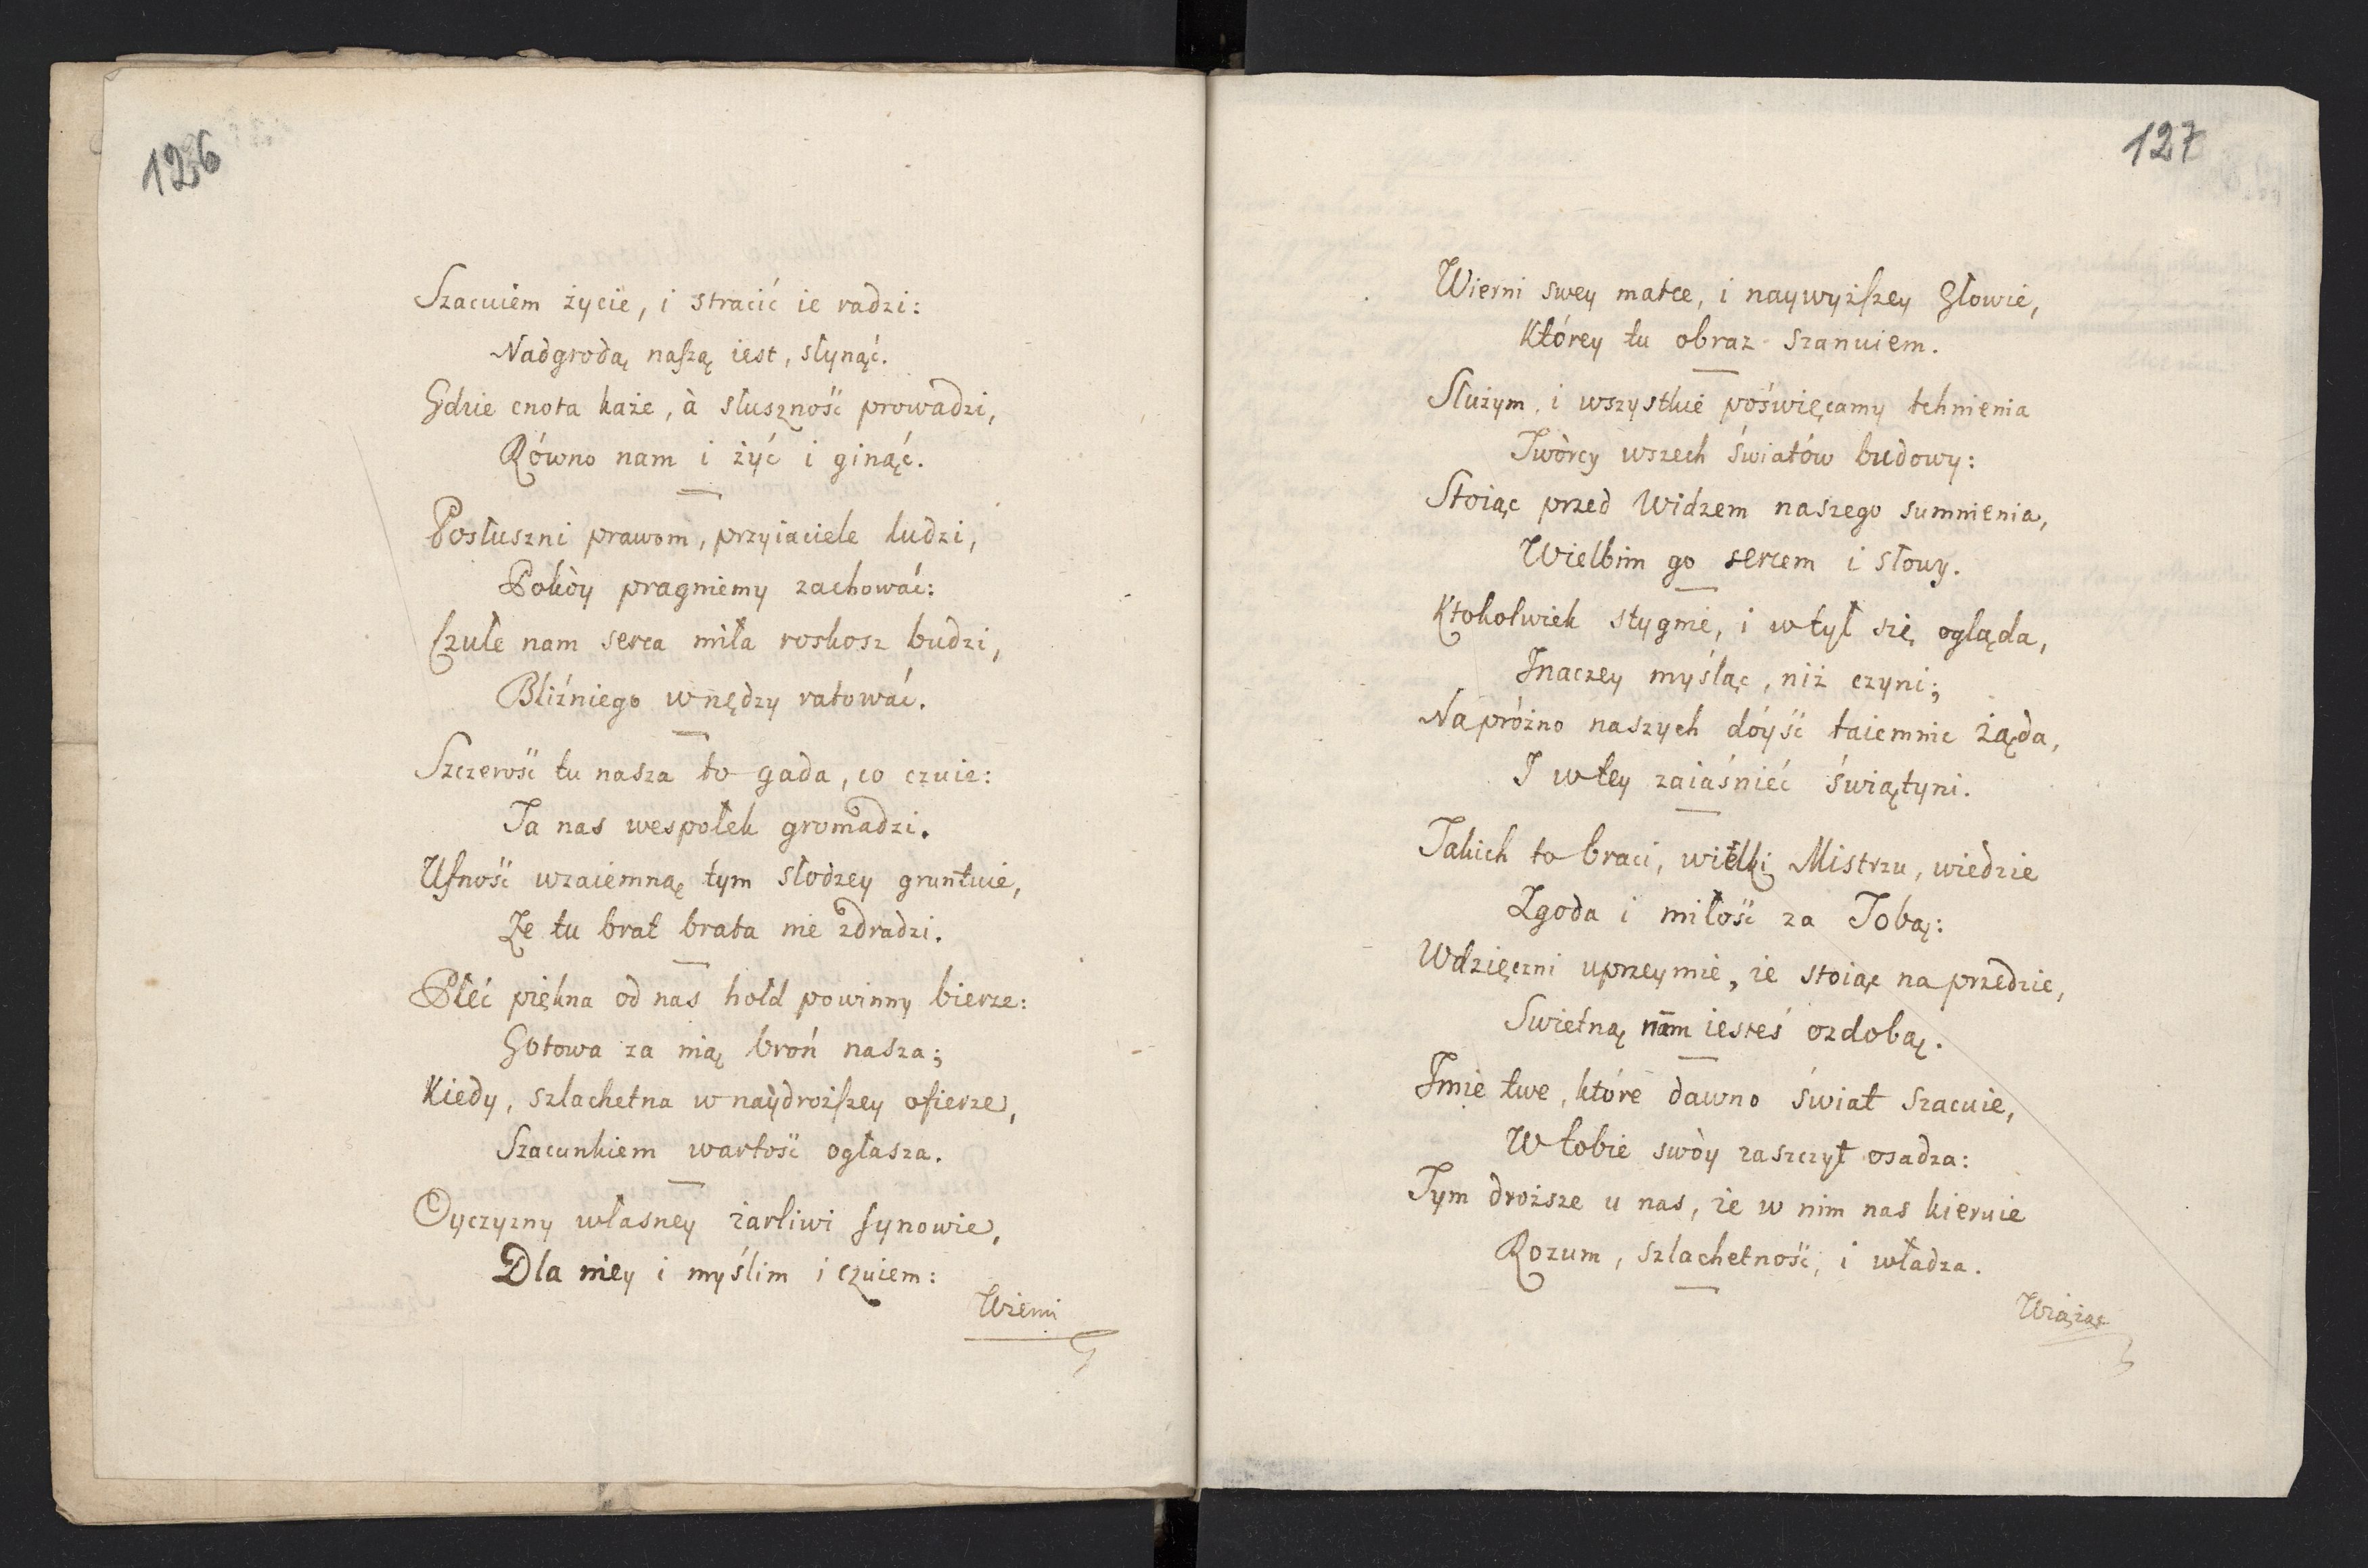 126
Szacuiem życie, i stracić ie radzi:
Nadgrodą naszą iest, słynąć.
Gdzie cnota każe, à słuszność prowadzi,
Równo nam i żyć i ginąć.
Posłuszni prawom, przyiaciele ludzi,
Pokòy pragniemy zachować:
Czułe nam serca miła roskosz budzi,
Bliźniego w nędzy ratować.
Szczerość tu nasza to gada, co czuie:
Ta nas wespołek gromadzi.
Ufność wzaiemną tym słodzey gruntuie,
Że tu brat brata nie zdradzi.
Płeć piękna od nas hołd powinny bierze:
Gotowa za nią broń nasza;
Kiedy, szlachetna w naydroższey ofierze,
Szacunkiem wartość ogłasza.
Oyczyzny własney żarliwi synowie,
Dla niey i myślim i czuiem:
Wierni
127
Wierni swey matce, i naywyższey Głowie,
Którey tu obraz szanuiem.
Służym, i wszystkie poświęcamy tchnienia
Twòrcy wszech światów budowy:
Stoiąc przed Widzem naszego sumnienia,
Wielbim go sercem i słowy.
Ktokolwiek stygnie, i w tył się ogląda,
Inaczey myśląc, niż czyni;
Napróżno naszych dóyść taiemnic żąda,
I w tey zaiaśnieć świątyni.
Takich to braci, wielki Mistrzu, wiedzie
Zgoda i miłość za Tobą:
Wdzięczni uprzeymie, że stoiąc na przedzie,
Swietną nam iesteś ozdobą.
Imie twe, które dawno świat szacuie,
W tobie swòy zaszczyt osadza:
Tym droższe u nas, że w nim nas kieruie
Rozum, szlachetność, i władza.
Wiążąc